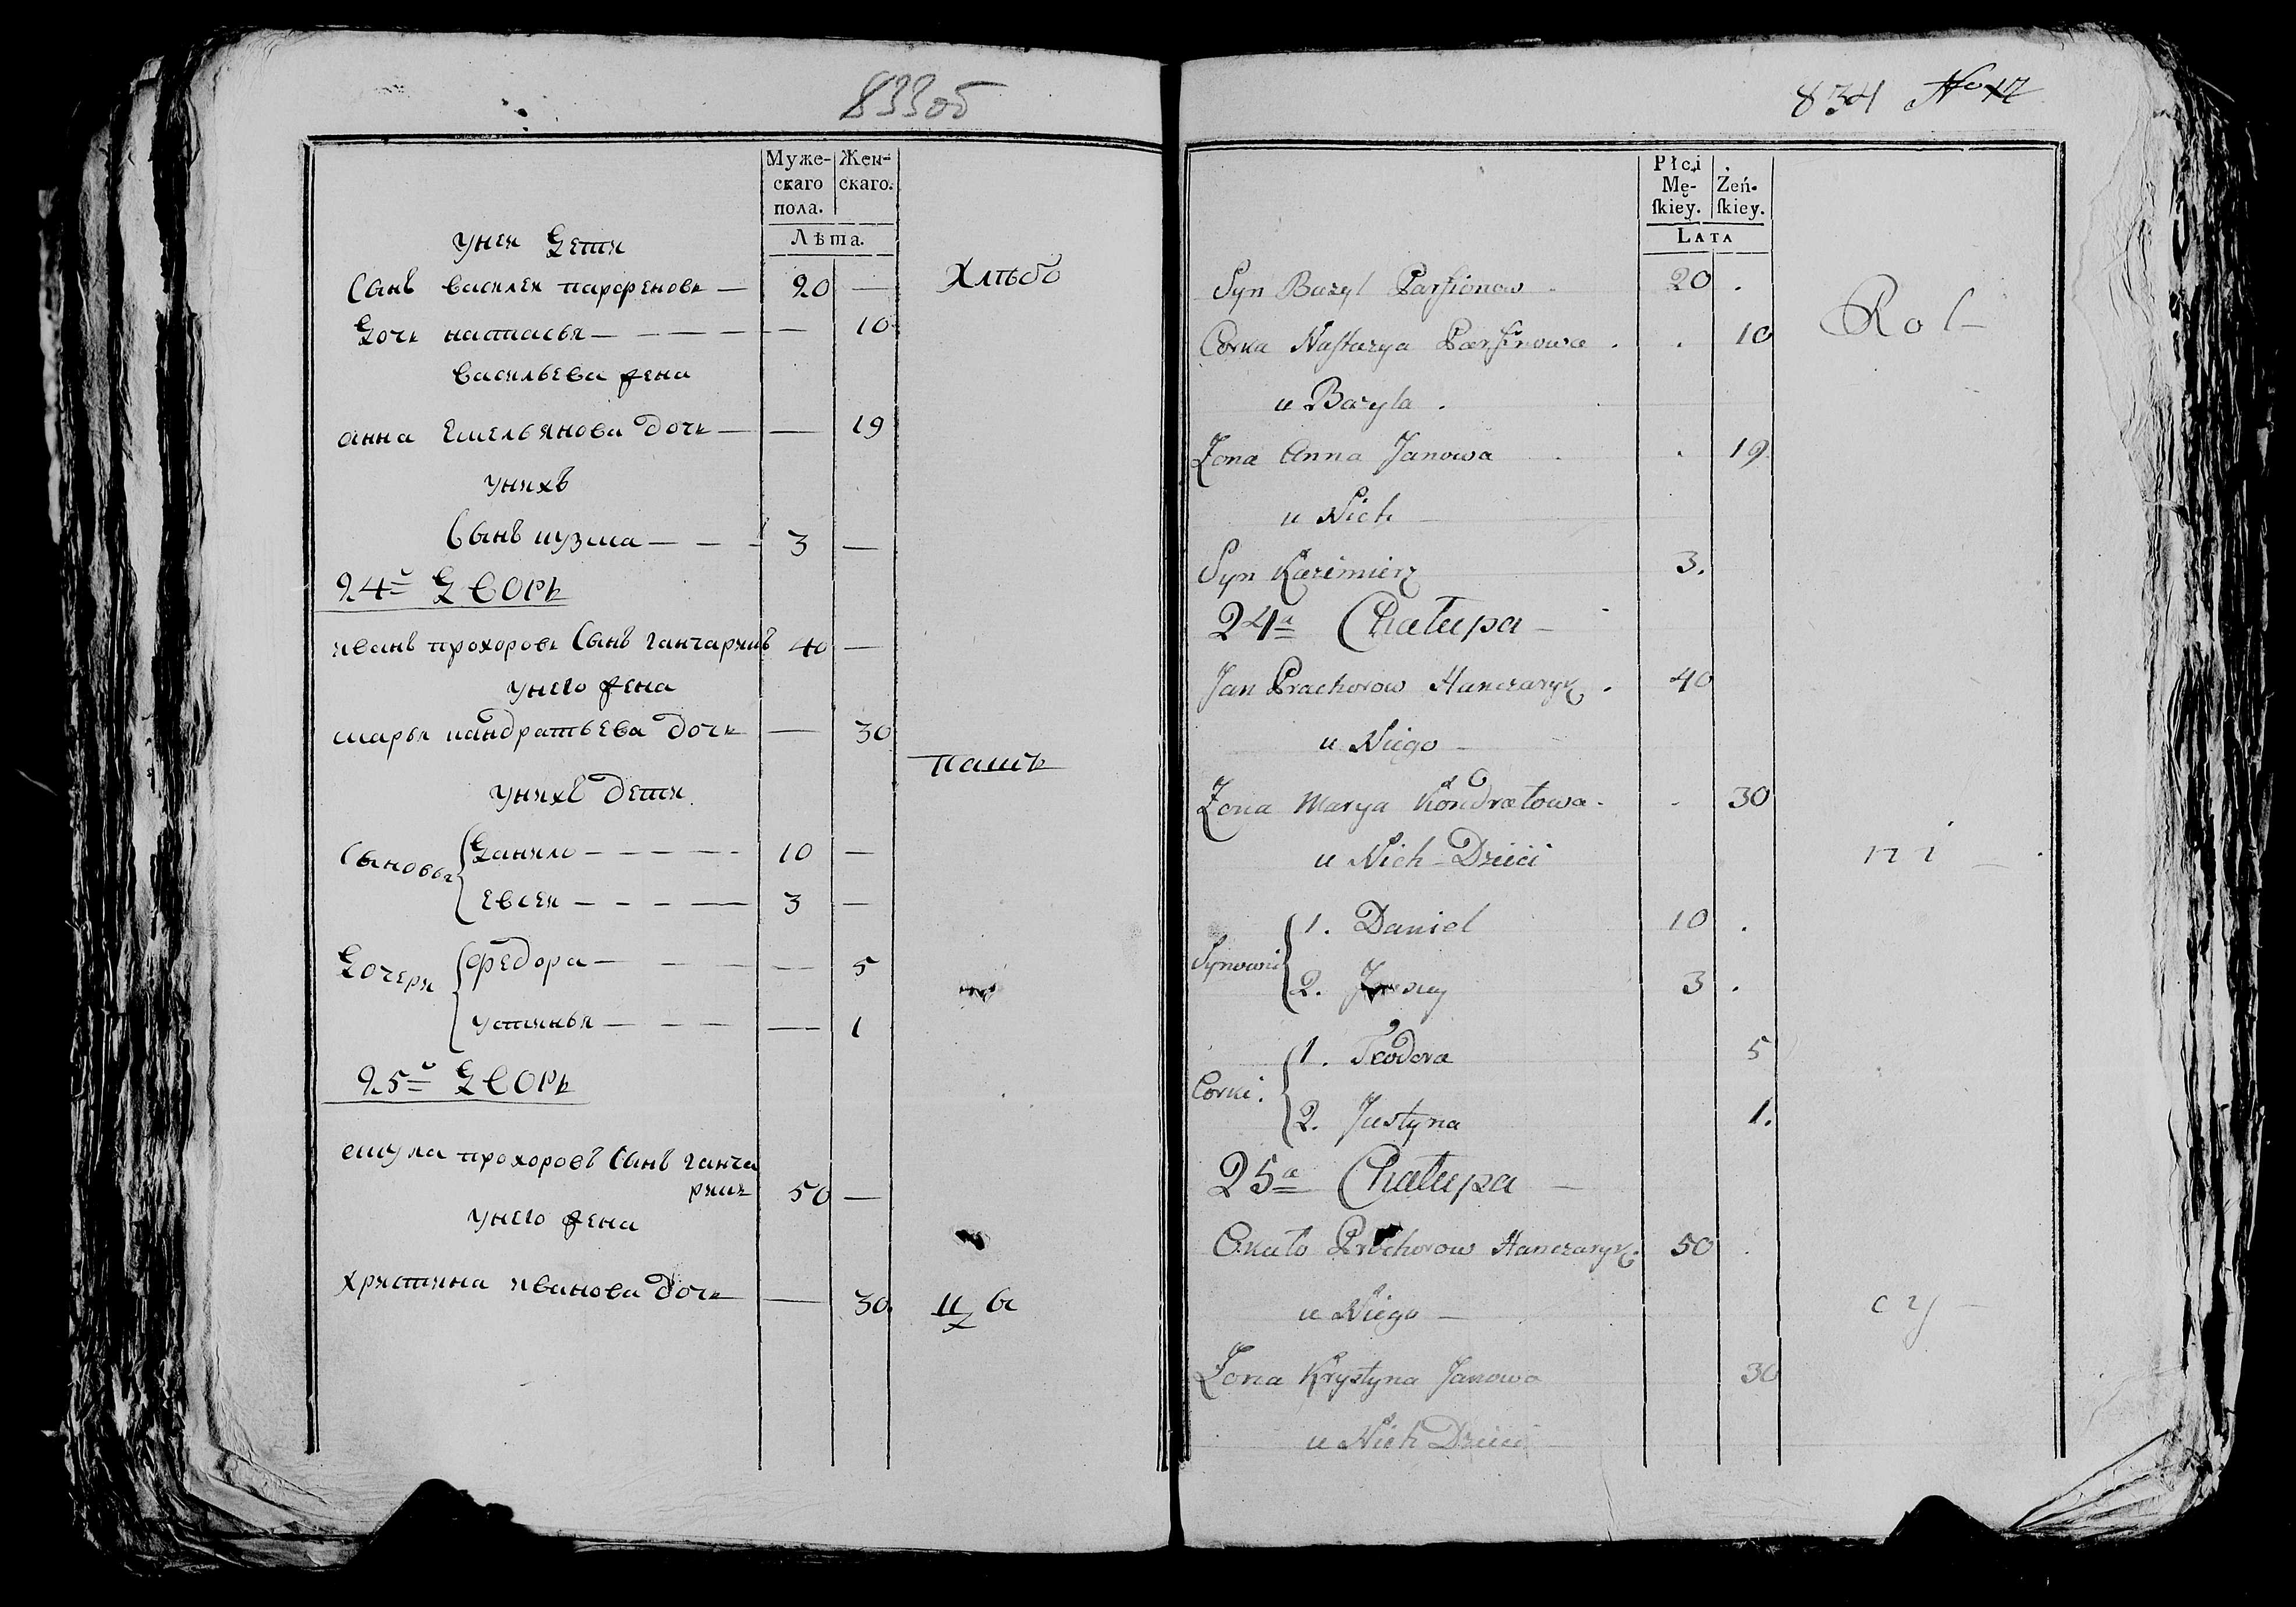 833об
Муже-
скаго
пола.
Жен-
скаго.
Лѣта.
унея дети
Сынъ василеи парфеновъ — 20 —
дочь настасья — — — — — 10
васильева жена
анна Емельянова дочь — — 19
унихъ
Сынъ кузма — — - 3 —
24й дворъ
иванъ прохоровъ Сынъ ганчарикъ 40 —
унего жена
марья кандратьева дочь — 30
унихъ дети
Сыновья
данило — — — — 10 —
евсеи — — — — 3 —
дочери
федора — — — — 5
устинья — — — — 1
25й дворъ
прохоровъ Сынъ ганча
рикъ 50 —
унего жена
христина иванова дочь — 30
Хлѣбо
паш
цы
834 No 17
Płci
Mę-
ſkiey.
Żeń-
ſkiey.
LATA
Syn Bazyl Parfionow - 20 .
Corka Naſtazya Parfionowa . . 10
u Bazyla .
Zona Anna Janowa . . 19
u Nich —
Syn Kazimierz 3.
24a Chałupa —
Jan Prachorow Hanczaryk . 40
u Niego —
Zona Marya Kondratowa . - 30
u Nich Dzieci
Synowie
1. Daniel 10 .
2. 3 .
Corki.
1. Teodora 5
2. Justyna 1.
25a Chałupa —
Prochorow Hanczaryk. 50 .
u Niego —
Zona Krystyna Janowa 30
u Nich Dzieci
Rol-
ni -
cy -